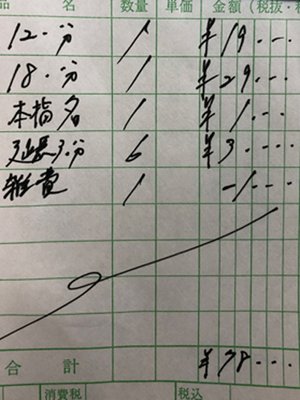 品 名 数量 単価 金額（税抜・税
12・分 1 ¥19・・・
18・分 1 ¥29・・・
本指名 1 ¥1・・・
延長3・分 6 ¥3・・・・
雑費 1 -1・・・
合計 ¥78・・・
消費税 税込